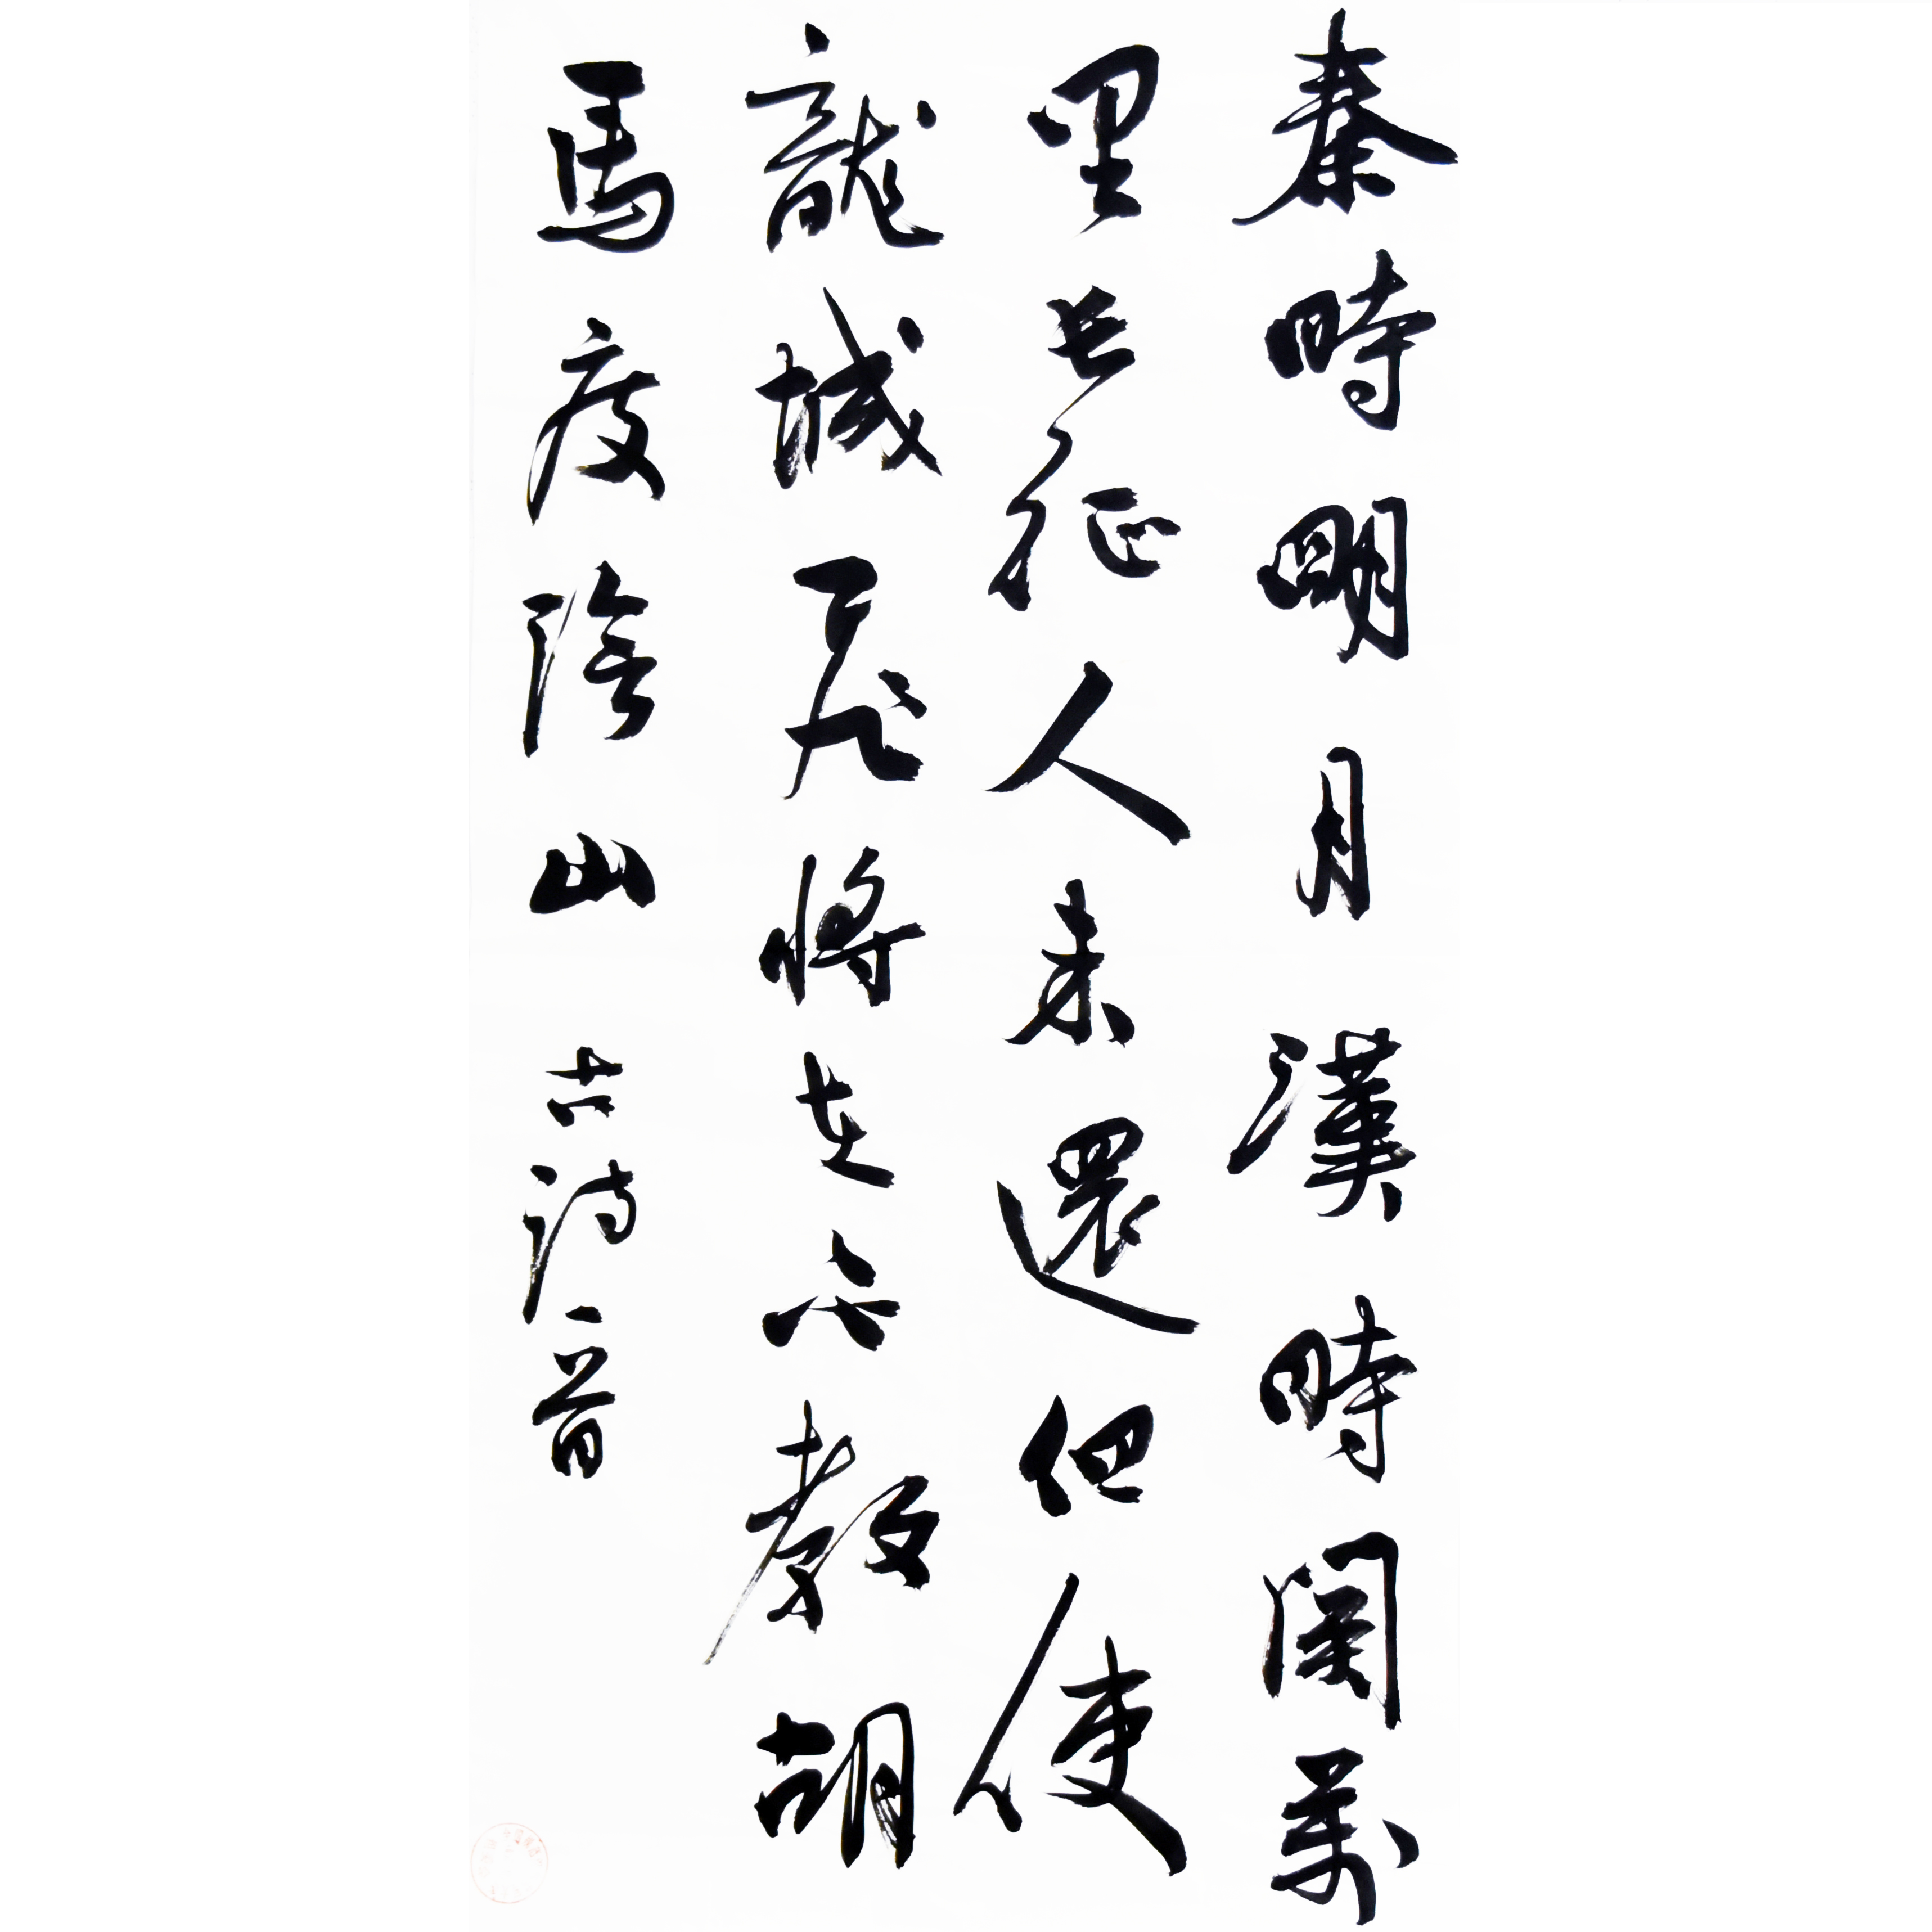 秦時明月漢時關萬
里長征人未還但使
龍城飛將在不教胡
馬度陰山 古詩一首